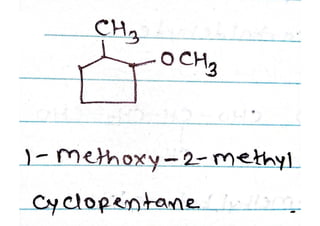 CH3
OCH3
1-methoxy-2-methyl
cyclopentane.